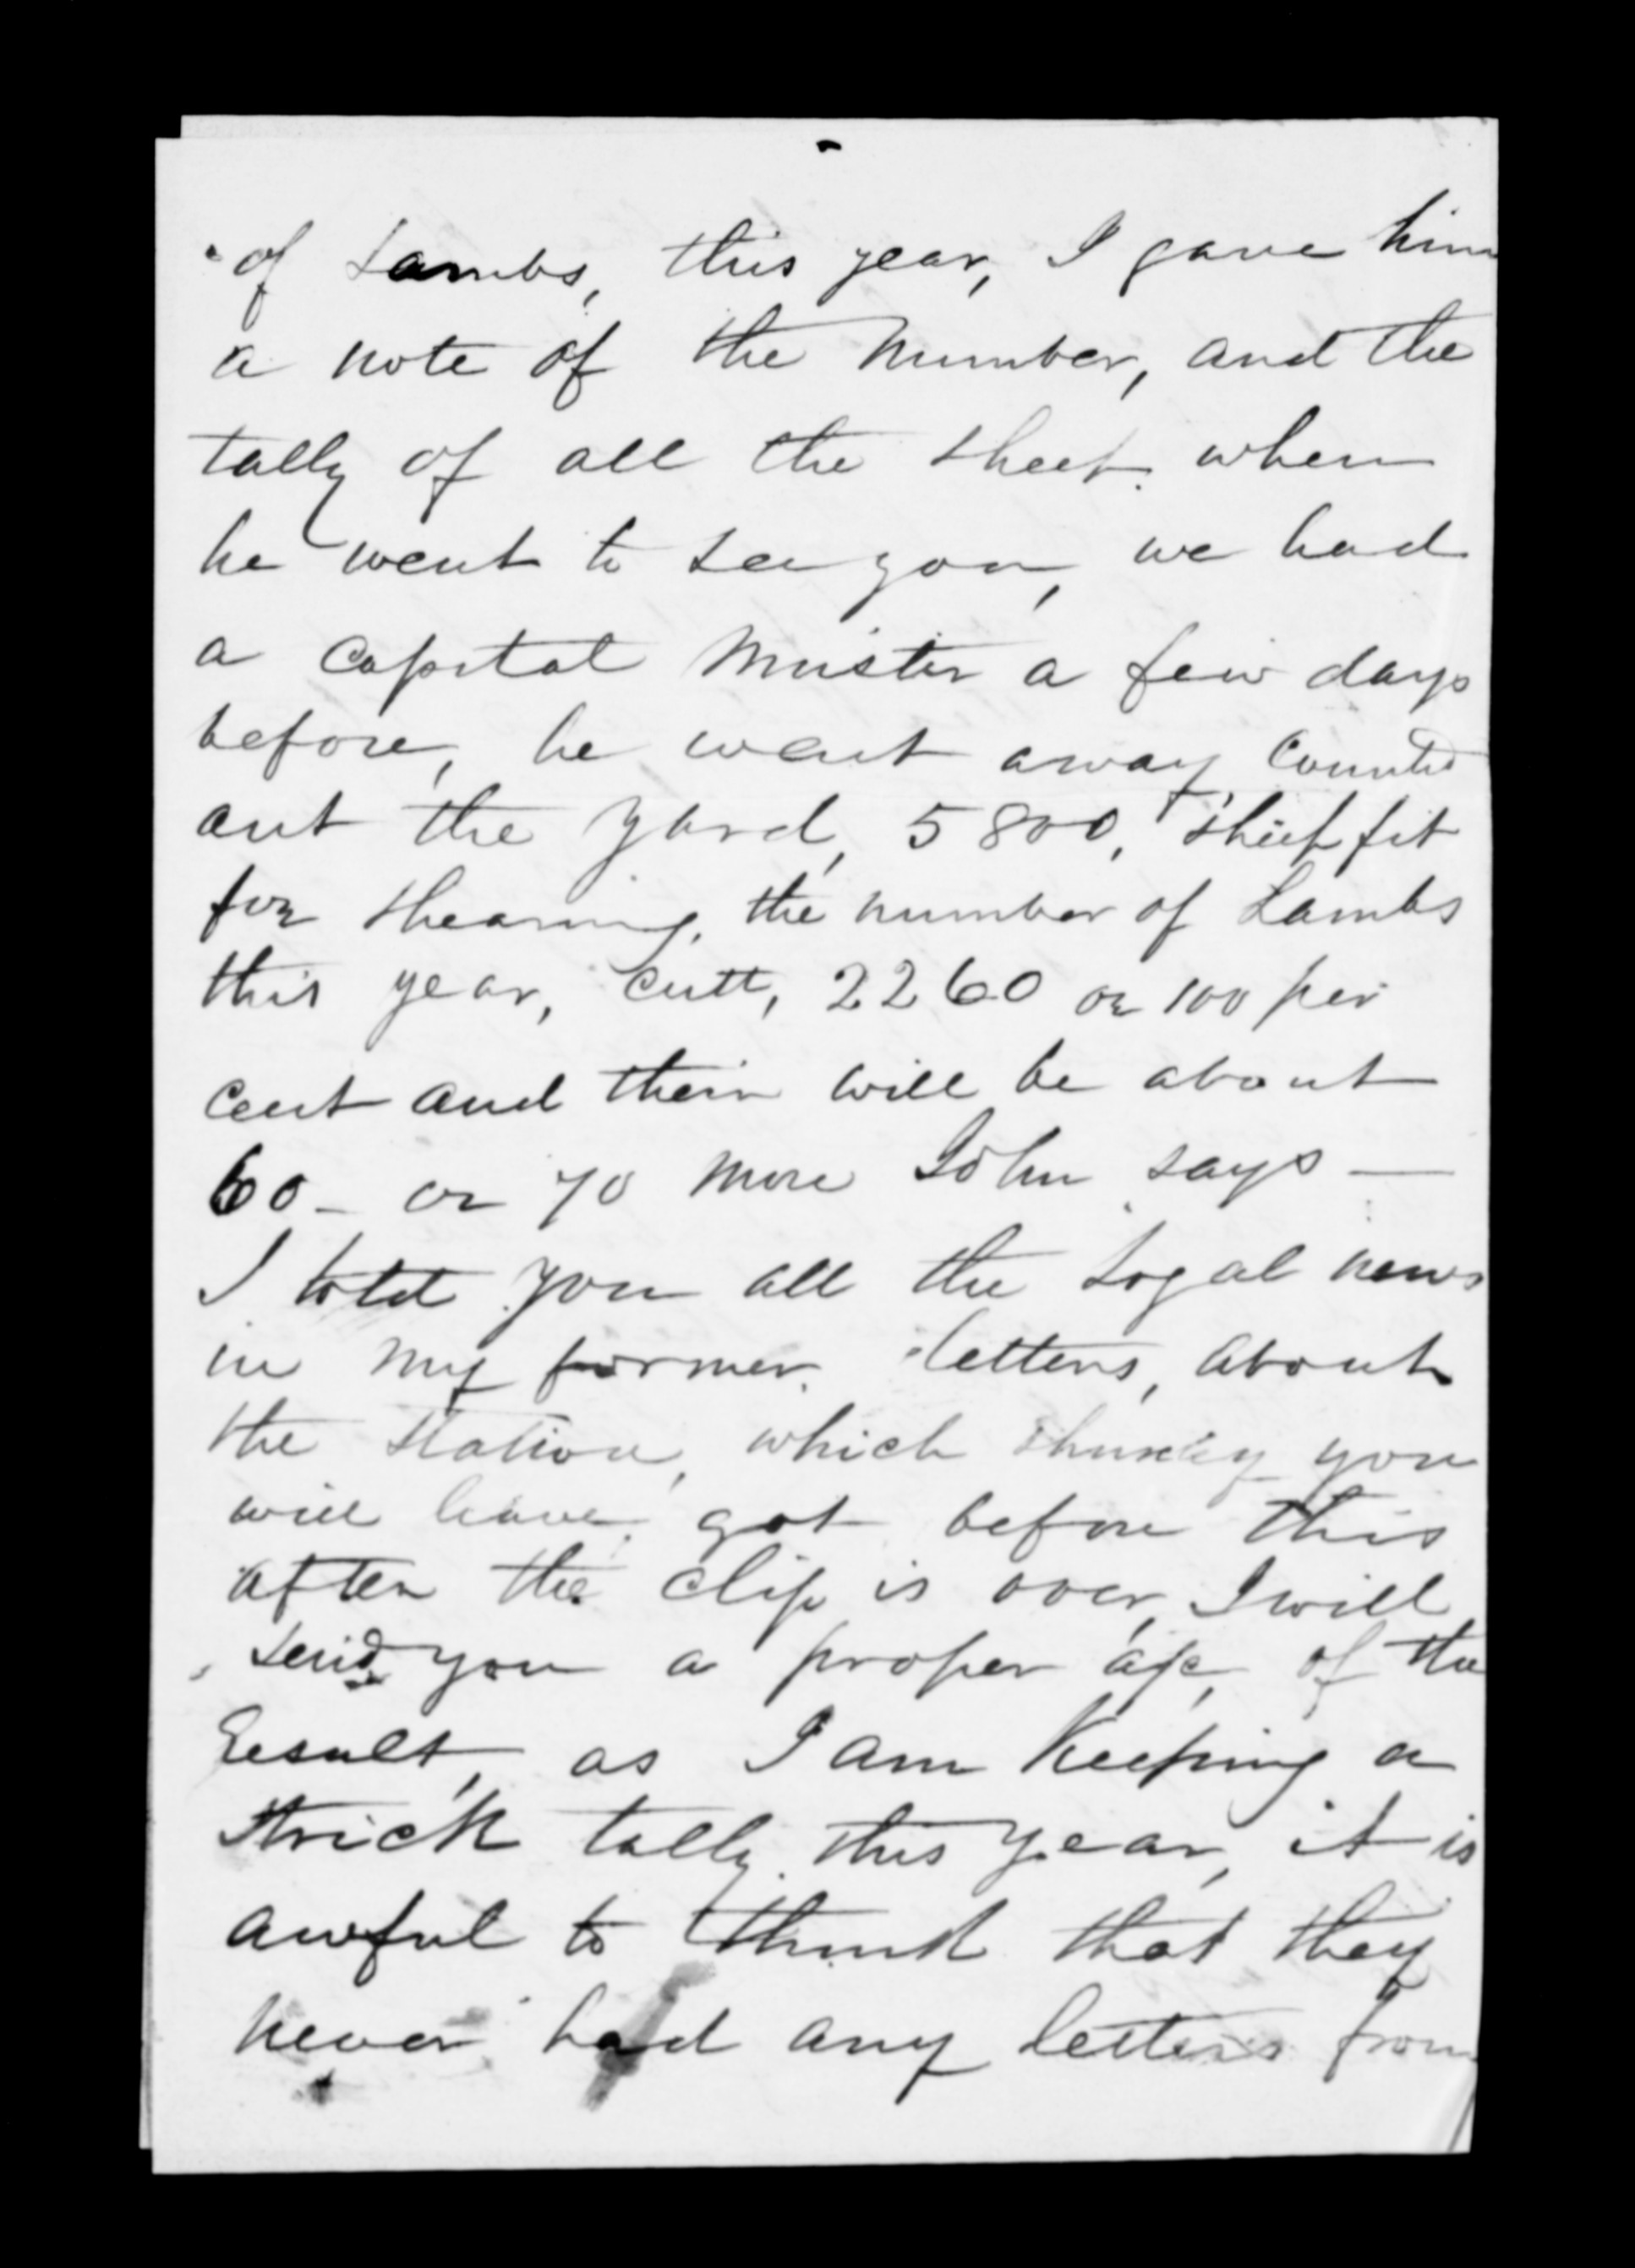 of Lambs, this year, I gave him
a note of the number, and the
tally of all the sheep. when
he went to see you, we had
a capital muster a few days
before, he went away, counted
out the yard, 5800, sheep fit
for shearing, the number of Lambs
this year, cutt, 2260 or 100 per
cent and their will be about
60 - or 70 more John says —
I told you all the Logal news
in my former letters, about
the station, which you
will have got before this
after the clip is over, I will
send you a proper a/c, of the
Result, as I am Keeping a
strick tally this year, it is
awful to think that they
never had any letters from